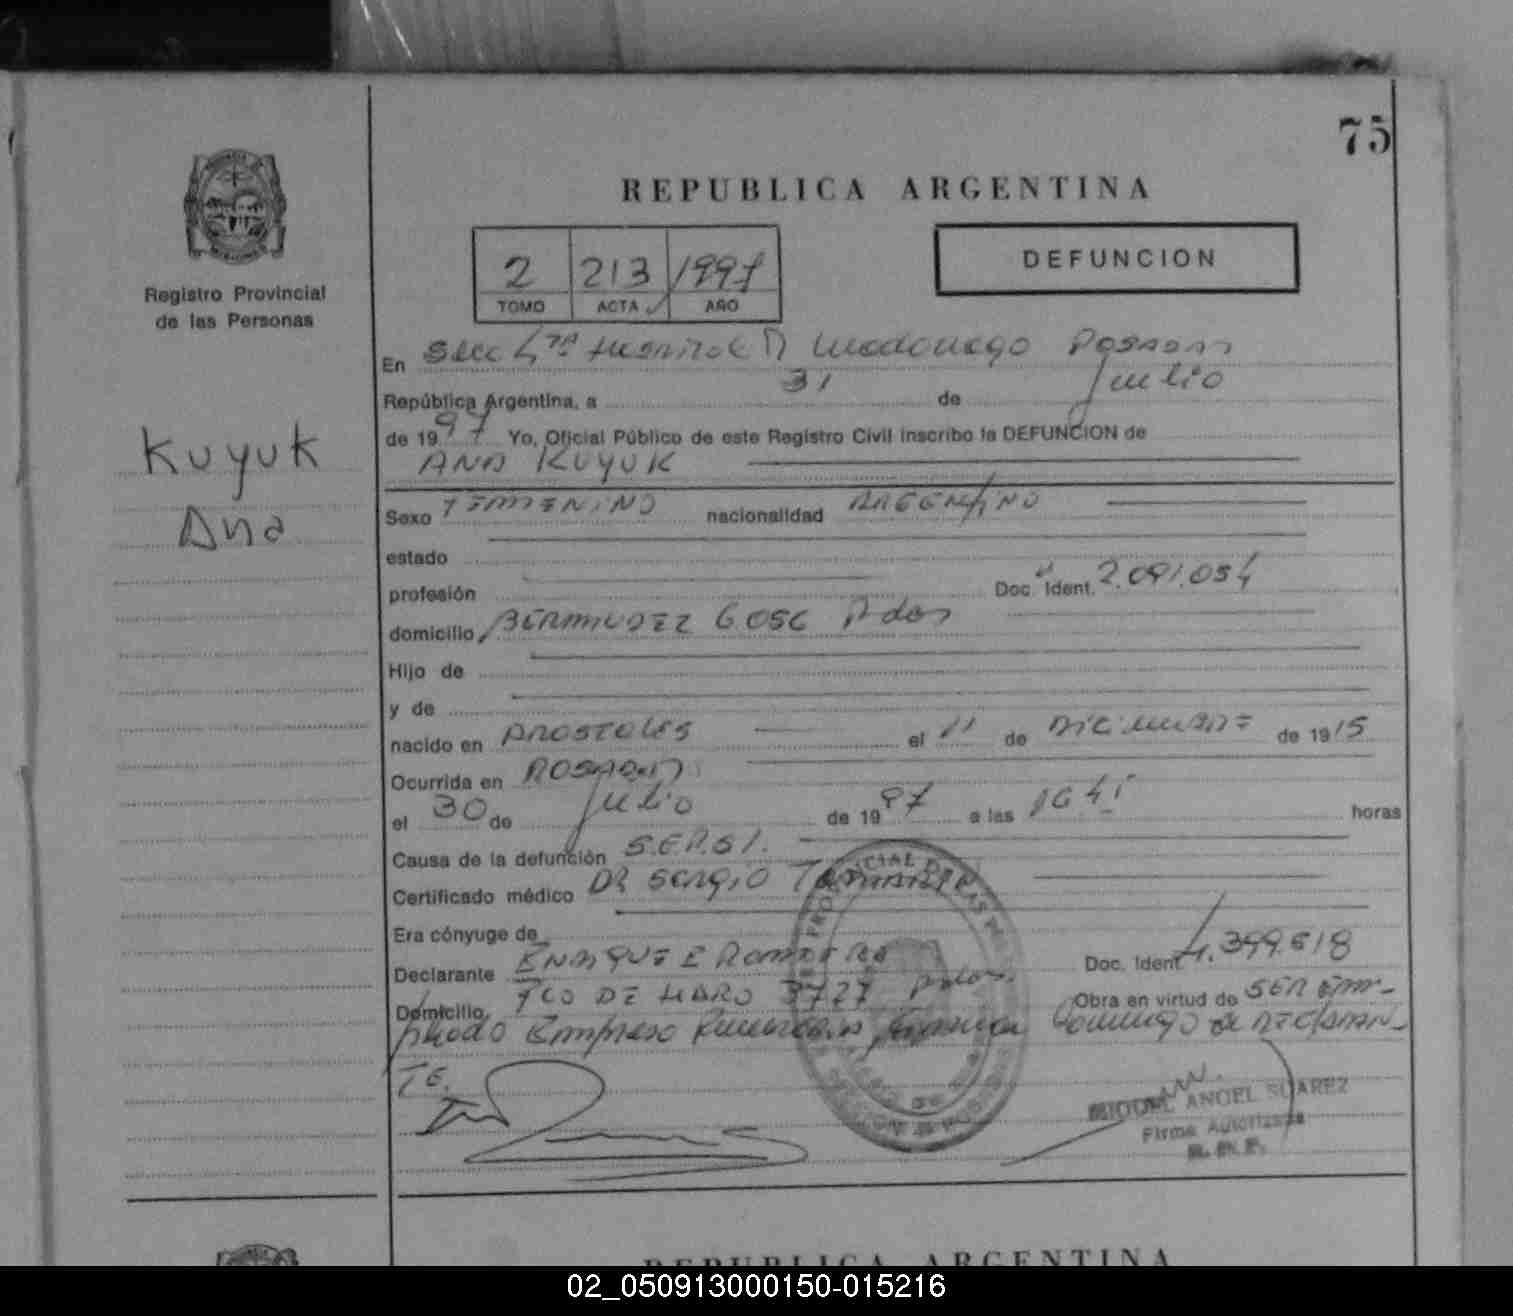 75
REPUBLICA ARGENTINA
2 213 1997
TOMO ACTA AÑO
DEFUNCION
Registro Provincial
de las Personas
Kuyuk
Ana
En Secc 4ta Hospital R Madariaga Posadas
República Argentina, a 31 de Julio
de 1997 Yo, Oficial Público de este Registro Civil inscribo la DEFUNCION de
ANA KUYUK
Sexo FEMENINO nacionalidad ARGENTINO
estado
profesión Doc. Ident. 2.091.054
domicilio BERMUDEZ 6056 Pdas
Hijo de
y de
nacido en APOSTOLES el 11 de DICIEMBRE de 1915
Ocurrida en POSADAS
el 30 de Julio de 1997 a las horas
Causa de la defunción
Certificado médico DR Sergio
Era cónyuge de
Declarante ENRIQUE Doc. Ident.
Domicilio FCO DE HARO 3727 Pdas. Obra en virtud de SER EM-
pleado Empresa DECLARAN-
TE.
MIGUEL ANGEL SUAREZ
Firma Autorizada
REPUBLICA ARGENTINA
02_050913000150-015216